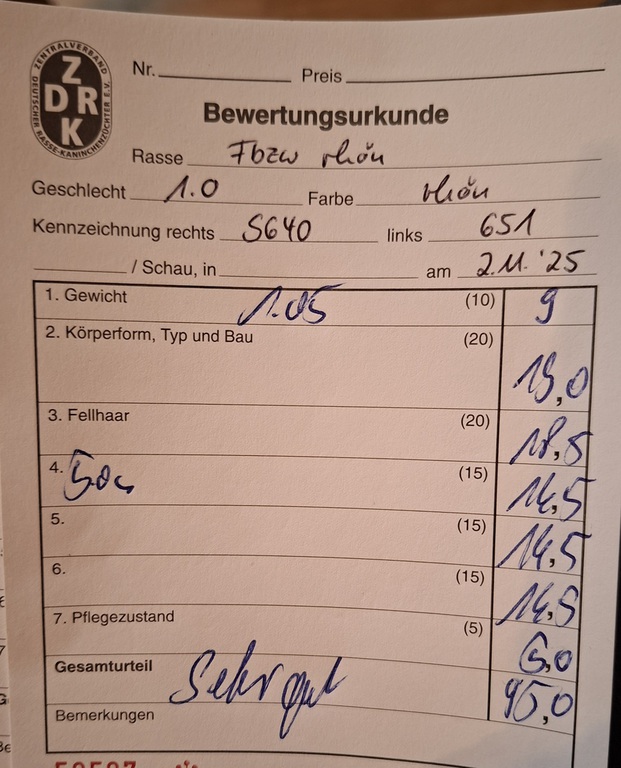 ZENTRALVERBAND
DEUTSCHER RASSE-KANINCHENZÜCHTER E.V.
Z
D R
K
Nr. Preis
Bewertungsurkunde
Rasse Fbzw rhön
Geschlecht 1.0 Farbe rhön
Kennzeichnung rechts S640 links 651
/ Schau, in am 2.11.'25
1. Gewicht 1.05 (10) 9
2. Körperform, Typ und Bau (20) 19,0
3. Fellhaar (20) 18,5
4. (15) 14,5
5. (15) 14,5
6. (15) 14,5
7. Pflegezustand (5) 5,0
Gesamturteil Sehr gut 95,0
Bemerkungen